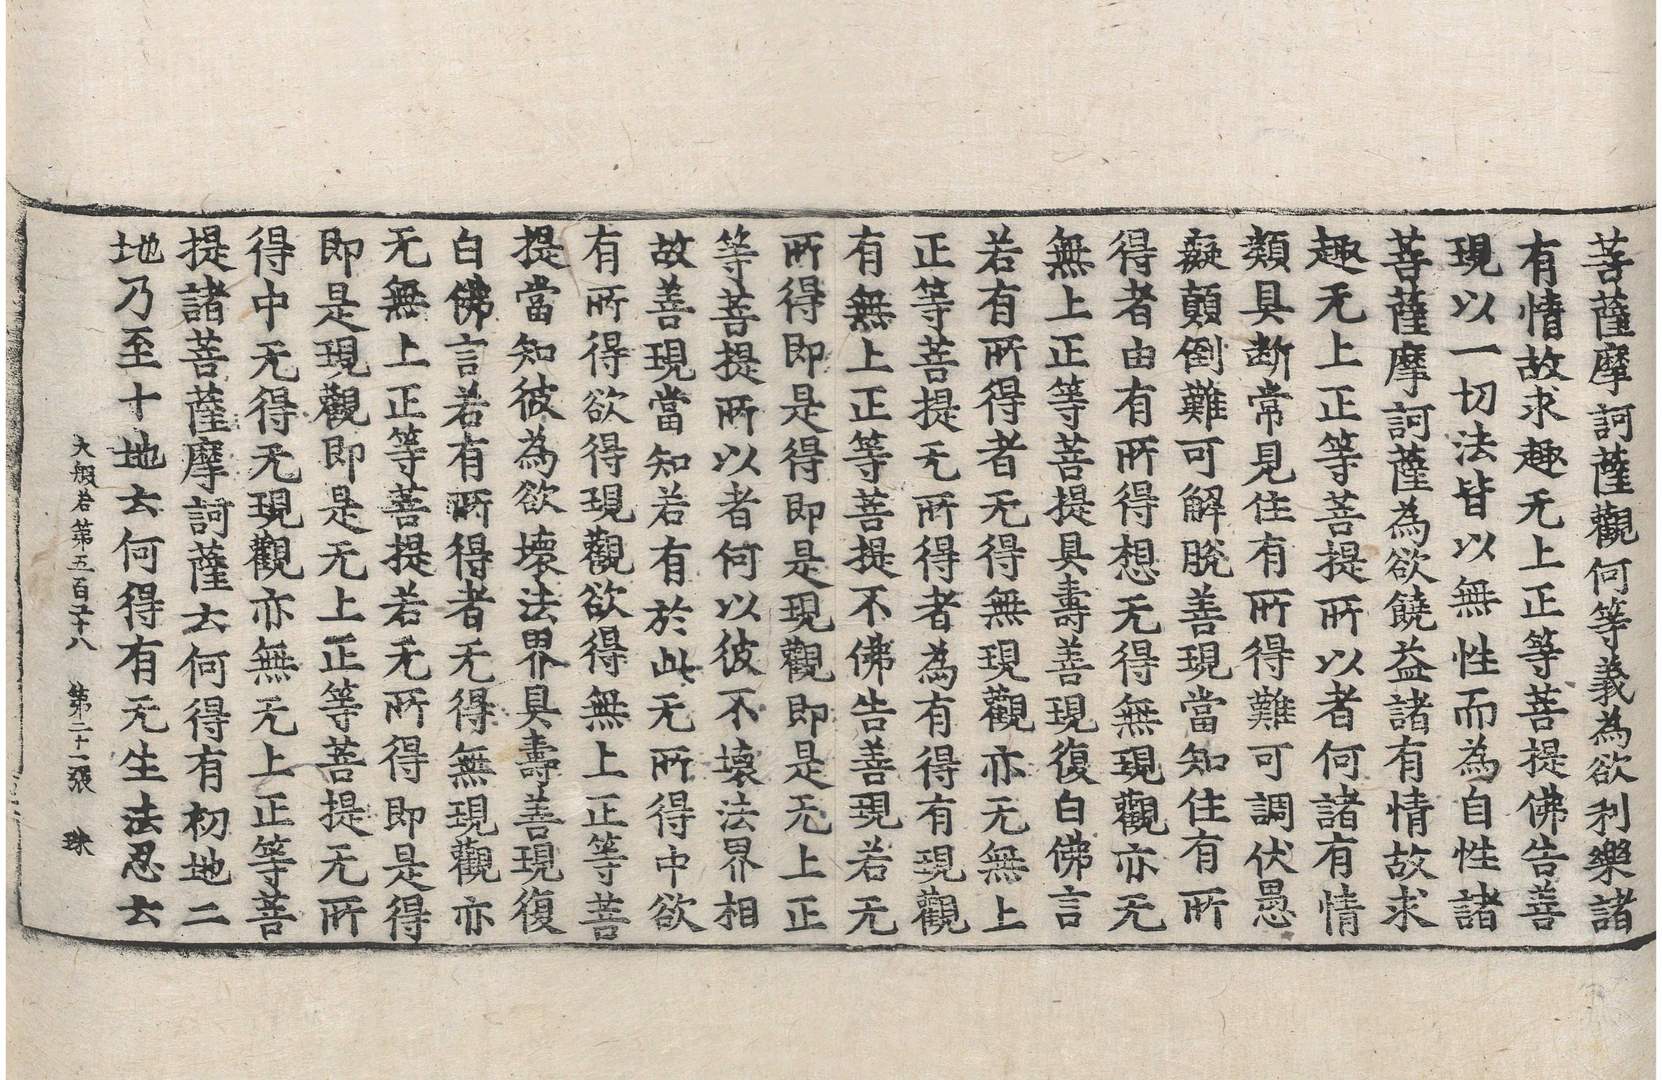 菩薩摩訶薩觀何等義為欲利樂諸
有情故求趣无上正等菩提佛告善
現以一切法皆以無性而為自性諸
菩薩摩訶薩為欲饒益諸有情故求
趣无上正等菩提所以者何諸有情
類具断常見住有所得難可調伏愚
癡顛倒難可解脫善現當知住有所
得者由有所得想无得無現觀亦无
無上正等菩提具壽善現復白佛言
若有所得者无得無現觀亦无無上
正等菩提无所得者為有得有現觀
有無上正等菩提不佛告善現若无
所得即是得即是現觀即是无上正
等菩提所以者何以彼不壞法界相
故善現當知若有於此无所得中欲
有所得欲得現觀欲得無上正等菩
提當知彼為欲壞法界具壽善現復
白佛言若有所得者无得無現觀亦
无無上正等菩提若无所得即是得
即是現觀即是无上正等菩提无所
得中无得无現觀亦無无上正等菩
提諸菩薩摩訶薩云何得有初地二
地乃至十地云何得有无生法忍云
大般若第五百二十八 第二十一張 珠